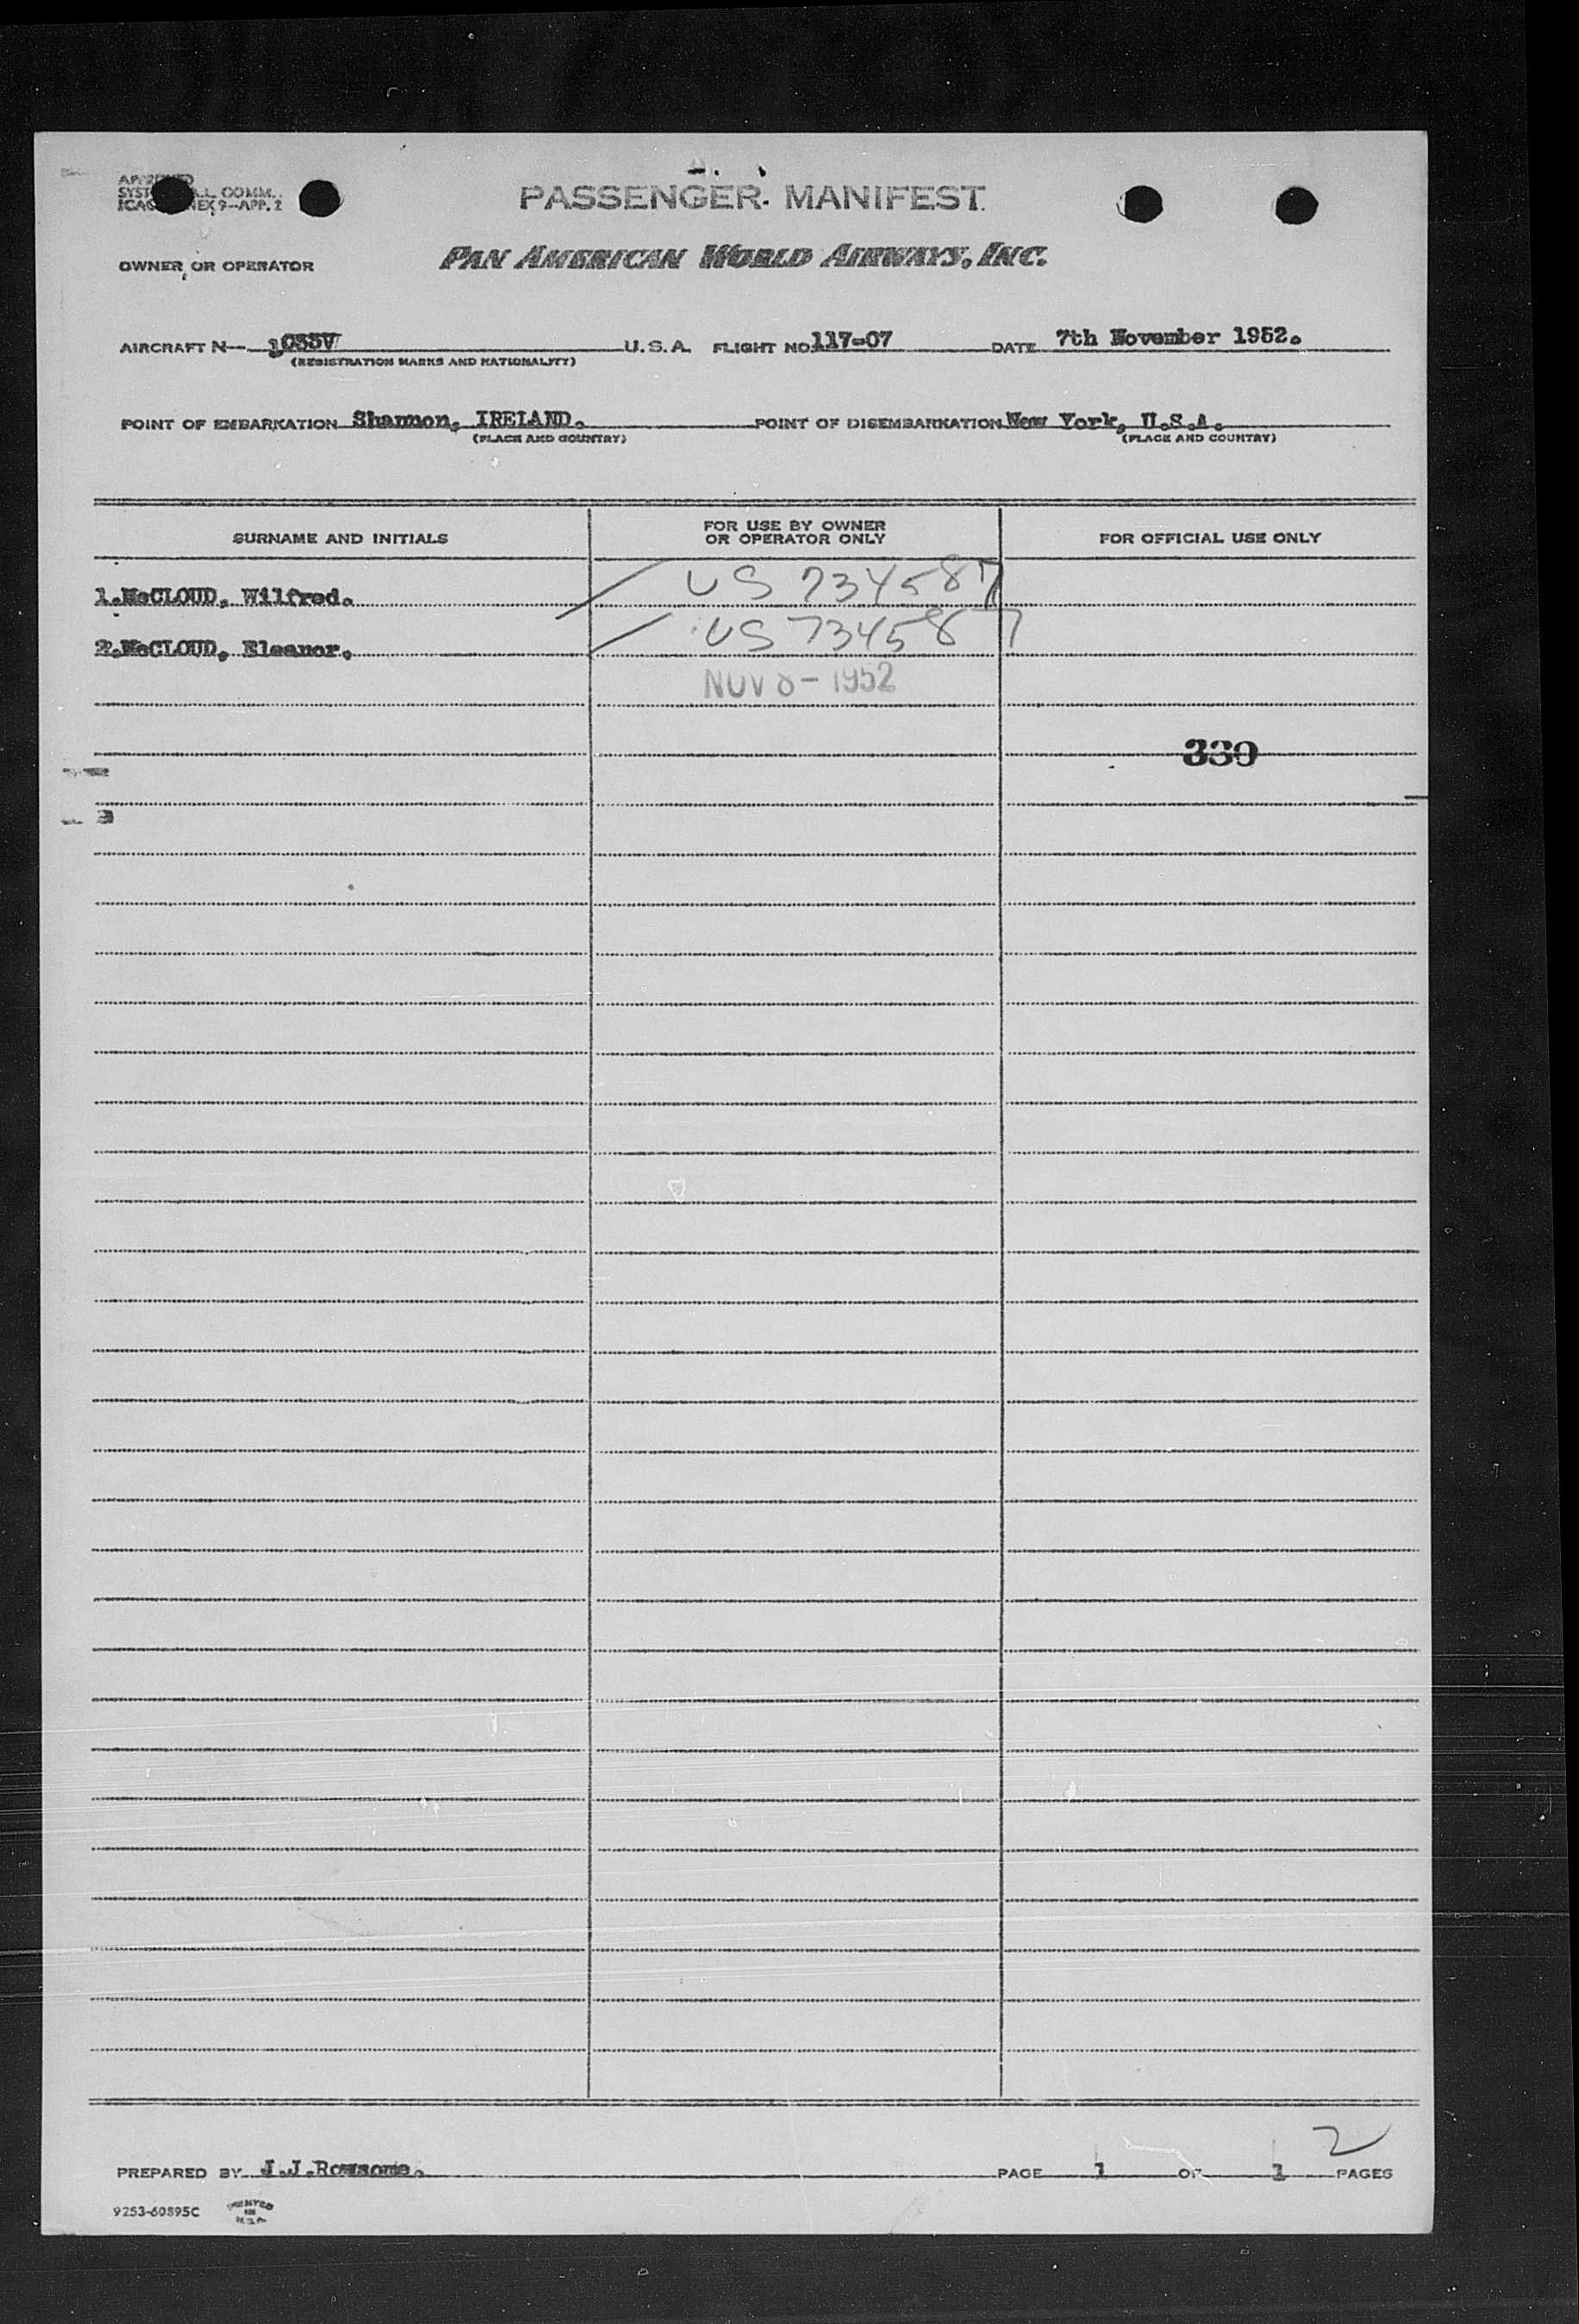 PASSENGER MANIFEST
COMM.
9-APP. 2
OWNER OR OPERATOR PAN AMERICAN WORLD AIRWAYS, INC.
AIRCRAFT N- 1033V U.S.A. FLIGHT NO. 117-07 DATE 7th November 1952.
(REGISTRATION MARKS AND NATIONALITY)
POINT OF EMBARKATION Shannon, IRELAND. POINT OF DISEMBARKATION New York, U.S.A.
(PLACE AND COUNTRY) (PLACE AND COUNTRY)
SURNAME AND INITIALS FOR USE BY OWNER OR OPERATOR ONLY FOR OFFICIAL USE ONLY
1.McCLOUD, Wilfred. US 734587
2.McCLOUD, Eleanor. US 734587
NOV 8-1952
330
2
PREPARED BY J.J.Rowsome. PAGE 1 OF 1 PAGES
9253-60895C PRINTED IN U.S.A.